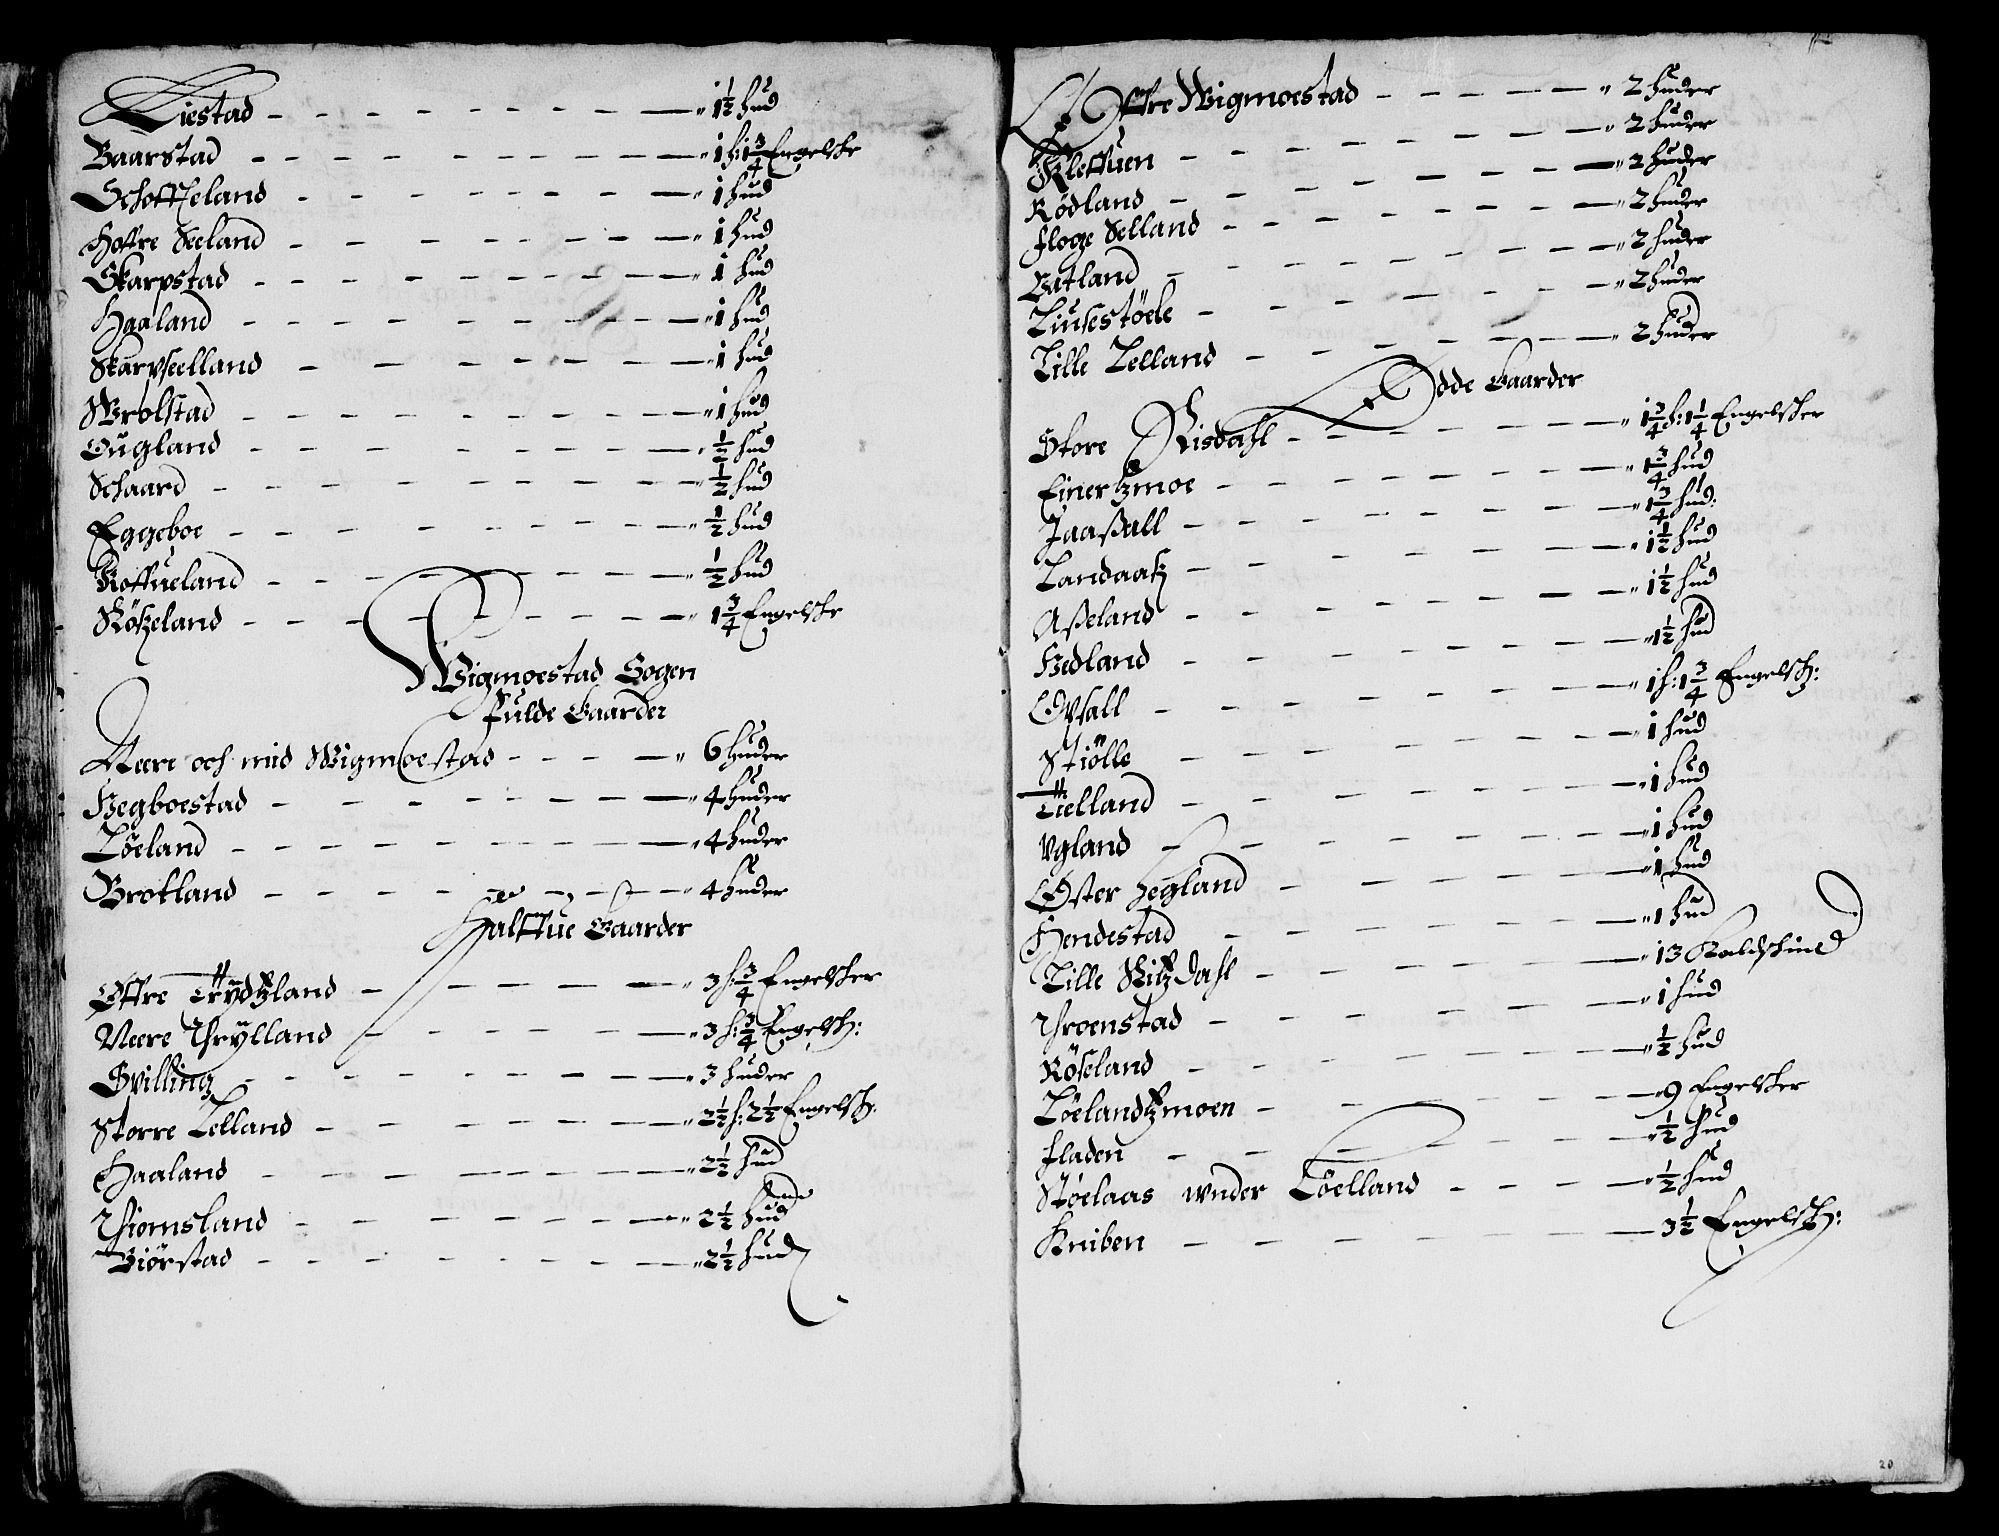 Liestad — 1½ hud
Baarstad — 1 h: 1¾ Engelske
Schoffteland — 1 hud
Hoffre Seeland — 1 hud
Skarpstad — 1 hud
Haaland — 1 hud
Skarpseelland — 1 hud
Wrolstad — 1 hud
Ougland — ½ hud
Schaard — ½ hud
Eggeboe — ½ hud
Koffueland — ½ hud
Röszeland — 1¾ Engelske
Wigmoestad Sogen
Fulde Gaarder
Neere och mid Wigmoestad — 6 huder
Hegboestad — 4 huder
Löeland — 4 huder
Brotland — 4 huder
Halffue Gaarder
Offre Trydtzland — 3 h ¾ Engelsker
Neere Thrylland — 3 h: ¾ Engelsch:
Spilling — 3 huder
Storre Lelland — 2½ h: 2½ Engelsch:
Haaland — 2½ hud
Thiomsland — 2½ hud
Biörstad — 2½ hud
Offre Wigmoestad — 2 huder
Kleffuen — 2 huder
Rödland — 2 huder
Floge Selland — 2 huder
Batland — 2 huder
Liusestöele — 2 huder
Lille Lelland — 2 huder
Ödde Gaarder
Store Risdahl — 1¾ h: 1¼ Engelsker
Einertzmoe — 1¾ hud
Jaaßall — 1¾ hud:
Landaasz — 1½ hud
Aßeland — 1½ hud
Hedland — 1½ hud
Opsall — 1 h: 1¾ Engelsch:
Stiölle — 1 hud
Tielland — 1 hud
Vgland — 1 hud
Øster Hegland — 1 hud
Hendestad — 1 hud
Lille Ritzdahl — 13 Kalschind
Throenstad — 1 hud
Röseland — ½ hud
Löelandtzmoen — 9 Engelsker
Fladen — ½ hud
Stöelaas wnder Löelland — ½ hud
Kniben — 3½ Engelsch:
20